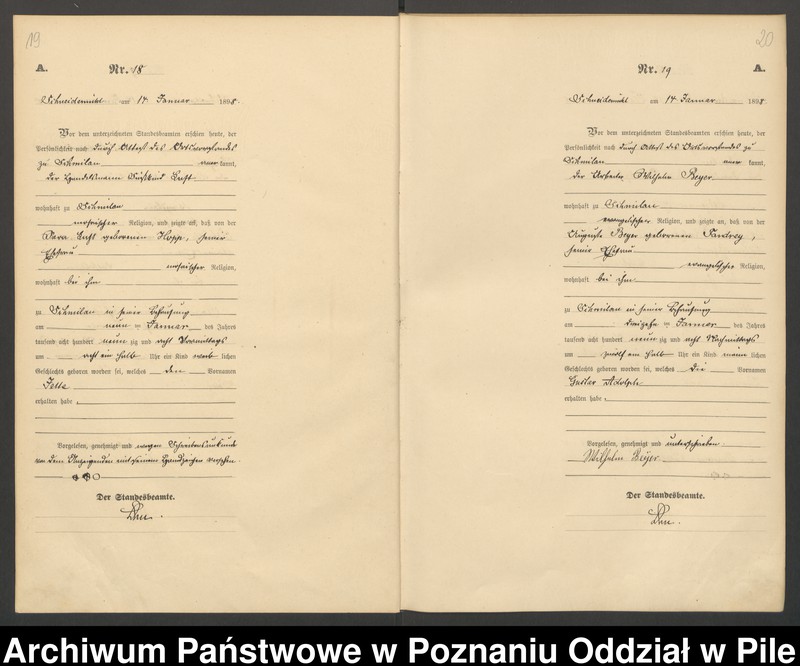 19
A.
Nr. 18
Schneidemühl am 14 Januar 1898.
Vor dem unterzeichneten Standesbeamten erschien heute, der
Persönlichkeit nach durch Attest des Ortsvorstandes
zu Schmilau kannt,
der Handelsmann Luft
wohnhaft zu Schmilau
mosaischer Religion, und zeigte an, daß von der
Sara Luft geborenen Hopp, seiner
Ehefrau
mosaischer Religion,
wohnhaft bei ihm
zu Schmilau in seiner Behausung
am neun ten Januar des Jahres
tausend acht hundert neun zig und acht Vormittags
um acht ein halb Uhr ein Kind weib lichen
Geschlechts geboren worden sei, welches den Vornamen
erhalten habe.
Vorgelesen, genehmigt und wegen Schreibensunkunde
von dem Anzeigenden mit seinem Handzeichen versehen.
Der Standesbeamte.
20
Nr. 19
A.
Schneidemühl am 14 Januar 1898.
Vor dem unterzeichneten Standesbeamten erschien heute, der
Persönlichkeit nach durch Attest des Ortsvorstandes zu
Schmilau kannt,
der Arbeiter Wilhelm Beyer
wohnhaft zu Schmilau
evangelischer Religion, und zeigte an, daß von der
Auguste Beyer geborenen seiner Ehefrau
evangelischer Religion,
wohnhaft bei ihm
zu Schmilau in seiner Behausung
am dreizehn ten Januar des Jahres
tausend acht hundert neun zig und acht Nachmittags
um zwölf ein halb Uhr ein Kind männ lichen
Geschlechts geboren worden sei, welches die Vornamen
Gustav Adolph
erhalten habe.
Vorgelesen, genehmigt und unterschrieben
Wilhelm Beyer
Der Standesbeamte.
Archiwum Państwowe w Poznaniu Oddział w Pile